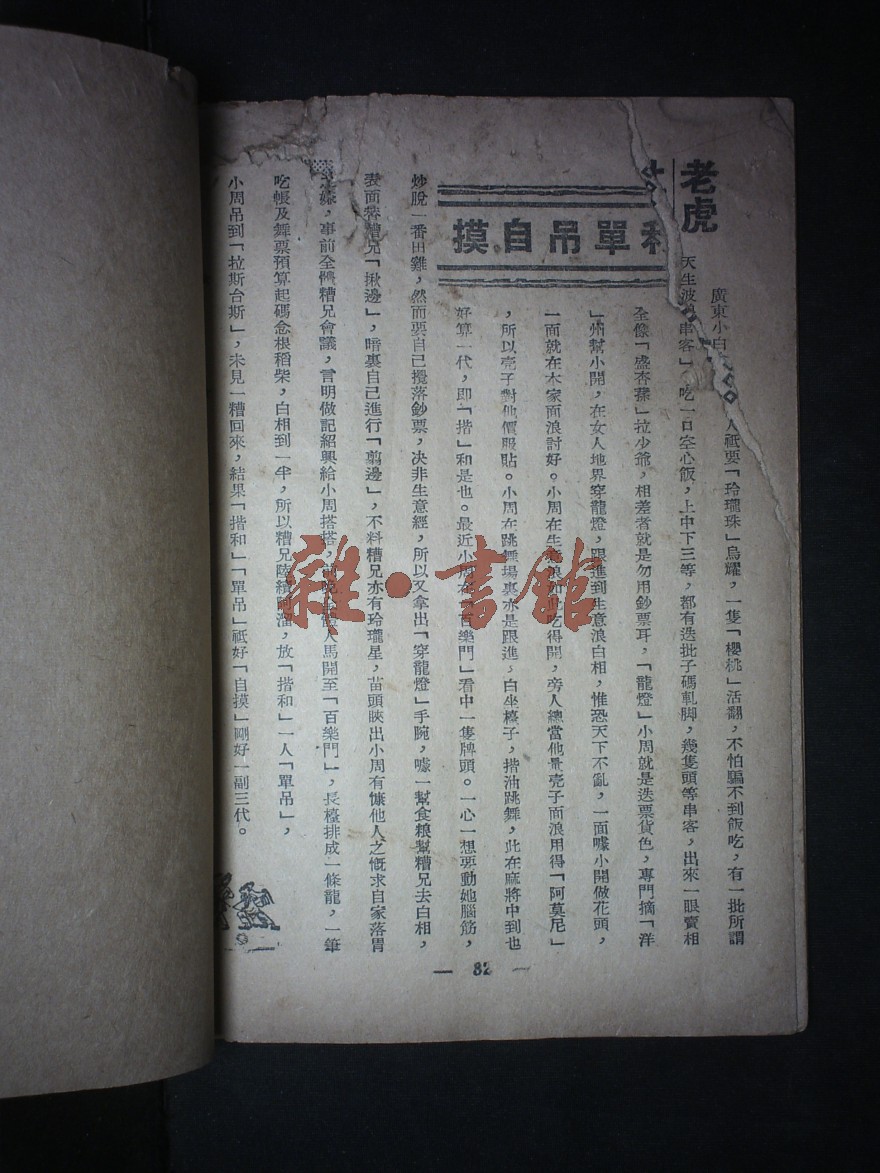 老虎
和單吊自摸
廣東小白
人祇要「玲瓏珠」烏耀,一隻「櫻桃」活翻,不怕騙不到飯吃,有一批所謂
天生波 串客」吃一口空心飯,上中下三等,都有迭批子碼軋脚,幾隻頭等串客,出來一眼賣相
全像「盛杏蓀」拉少爺,相差者就是勿用鈔票耳,「龍燈」小周就是迭票貨色,專門摘「洋
」州幫小開,在女人地界穿龍燈,跟進到生意浪白相,惟恐天下不亂,一面嚛小開做花頭,
一面就在木家面浪討好。小周在生意浪如此吃得開,旁人總當他量壳子面浪用得「阿莫尼」
,所以壳子對他價服貼。小周在跳舞場裏亦是跟進,白坐檯子,揩油跳舞,此在麻將中到也
好算一代,即「揩」和是也。最近小周在「百樂門」看中一隻牌頭。一心一想要動她腦筋,
炒脫一番田雞,然而要自己攪落鈔票,决非生意經,所以又拿出「穿龍燈」手腕,嚛一幫食粮幫糟兄去白相,
表面替糟兄「揪邊」,暗裏自己進行「剪邊」,不料糟兄亦有玲瓏星,苗頭䀹出小周有慷他人之慨求自家落胃
,事前全體糟兄會議,言明做記紹興給小周搭搭,人馬開至「百樂門」,長檯排成一條龍,一筆
吃帳及舞票預算起碼念根稻柴,白相到一半,所以糟兄陸續 溜,放「揩和」一人「單吊」,
小周吊到「拉斯台斯」,未見一糟回來,結果「揩和」「單吊」祇好「自摸」剛好一副三代。
— 82 —
雜·書館